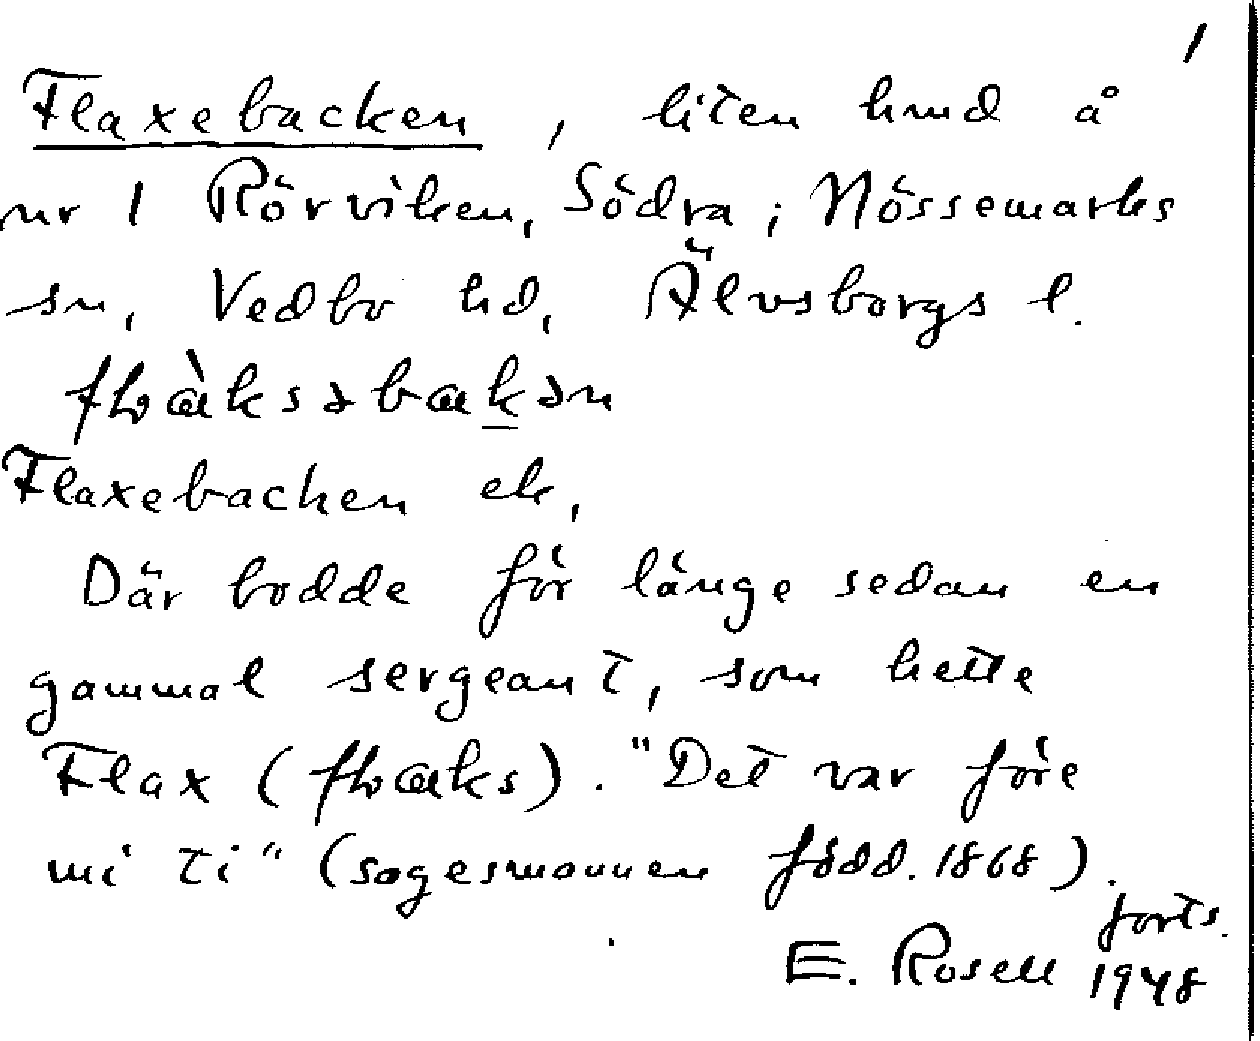 1
Flaxebacken, liten lund å
nr 1 Rörviken, Södra; Nössemarks
sn, Vedbo hd, Älvsborgs l.
Flaxebacken ek,
Där bodde för länge sedan en
gammal sergeant, som hette
Flax (). "Det var före
mi ti" (sagesmannen född. 1868).
forts.
E. Rosell 1948